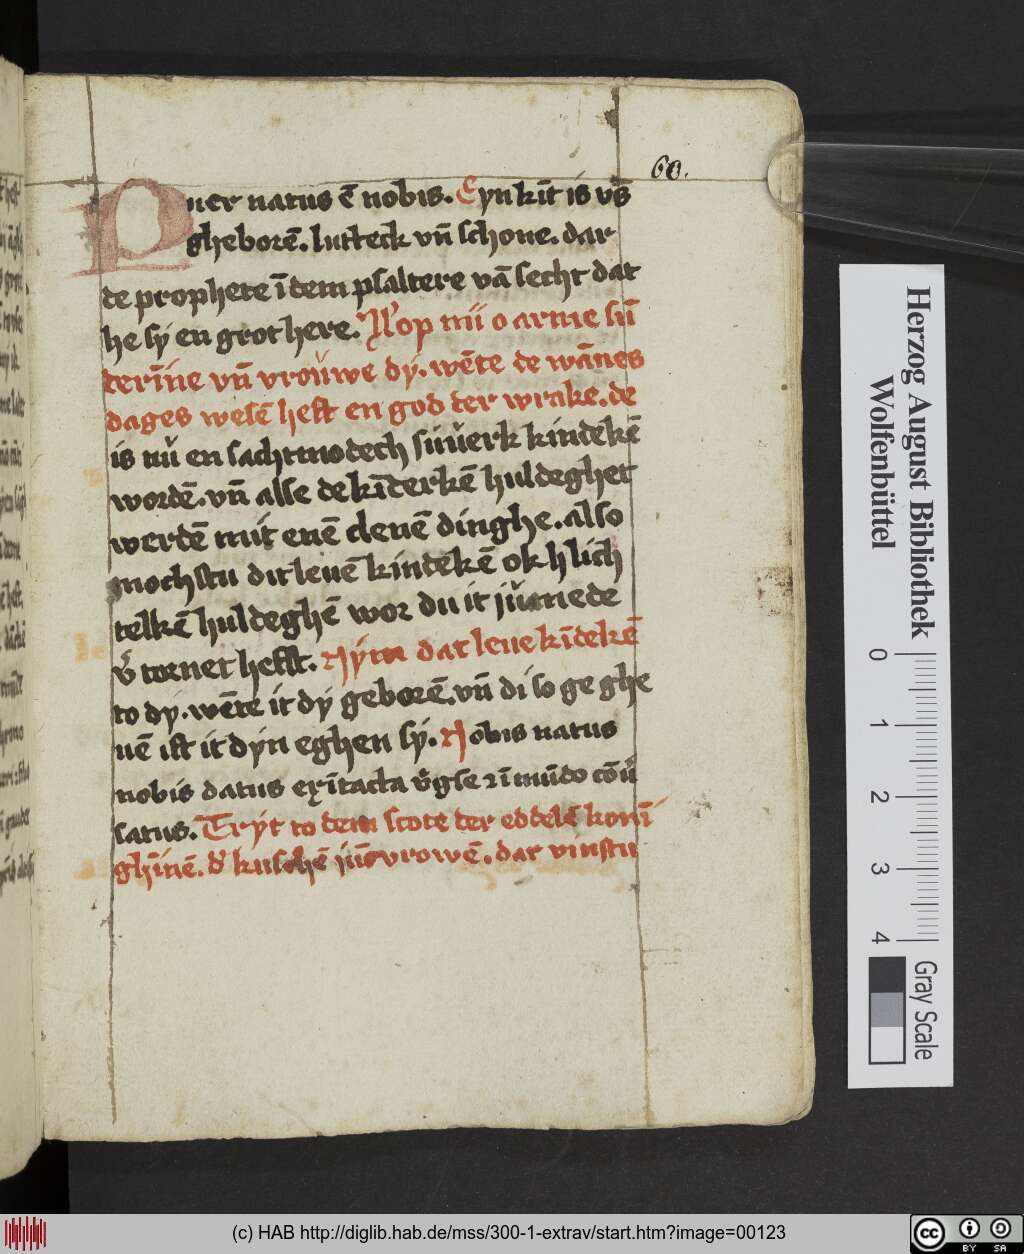 60.
Puer natus ē nobis. Eyn kīt is vs̄
gheborē. lutteck vn̄ schone. dar
de prophete ī dem psaltere vā secht dat
he sy en grot here. Rop nu o arme sū
terīne vn̄ vrouwe dy. wēte de wānes
dages wesē heft en god der wrake. de
is nu en sachtmodech suuerk kindekē
wordē. vn̄ alse de kīderkē huldeghet
werdē mit enē clenē dinghe. also
mochstu dit leuē kindekē ok
telkē huldeghē wor du it
tornet hefst. Nym dat leue kīdekē
to dy. wēte it dy geborē. vn̄ di so ge ghe
uē ist it dyn eghen sy. Nobis natus
nobis datus ex ītacta
satus. Tryt to dem scote der eddelē konī
ghīnē. d' kuschē vrowē. dat vinstu
Herzog August Bibliothek
Wolfenbüttel
0 1 2 3 4
Gray Scale
(c) HAB http://diglib.hab.de/mss/300-1-extrav/start.htm?image=00123
cc
BY SA